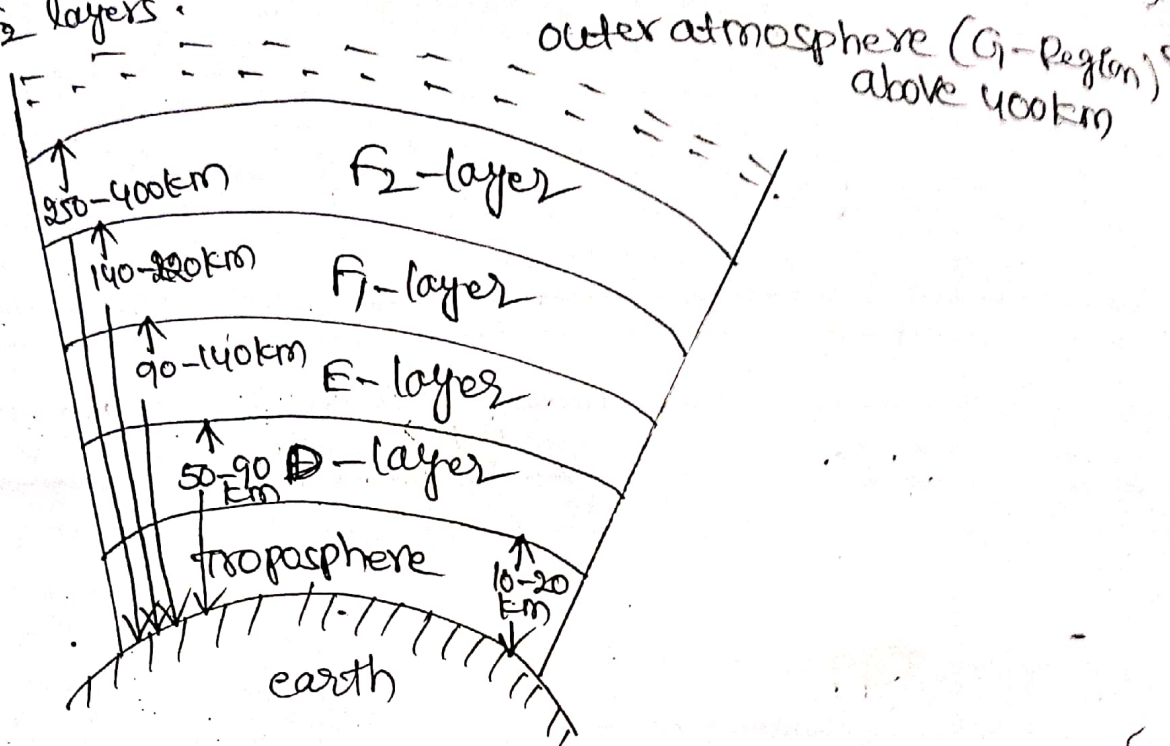 layers.
outer atmosphere (G-Region)
above 400km
F2-layer
250-400km
140-220km
F1-layer
90-140km
E-layer
50-90
km
D-layer
troposphere
10-20
km
earth